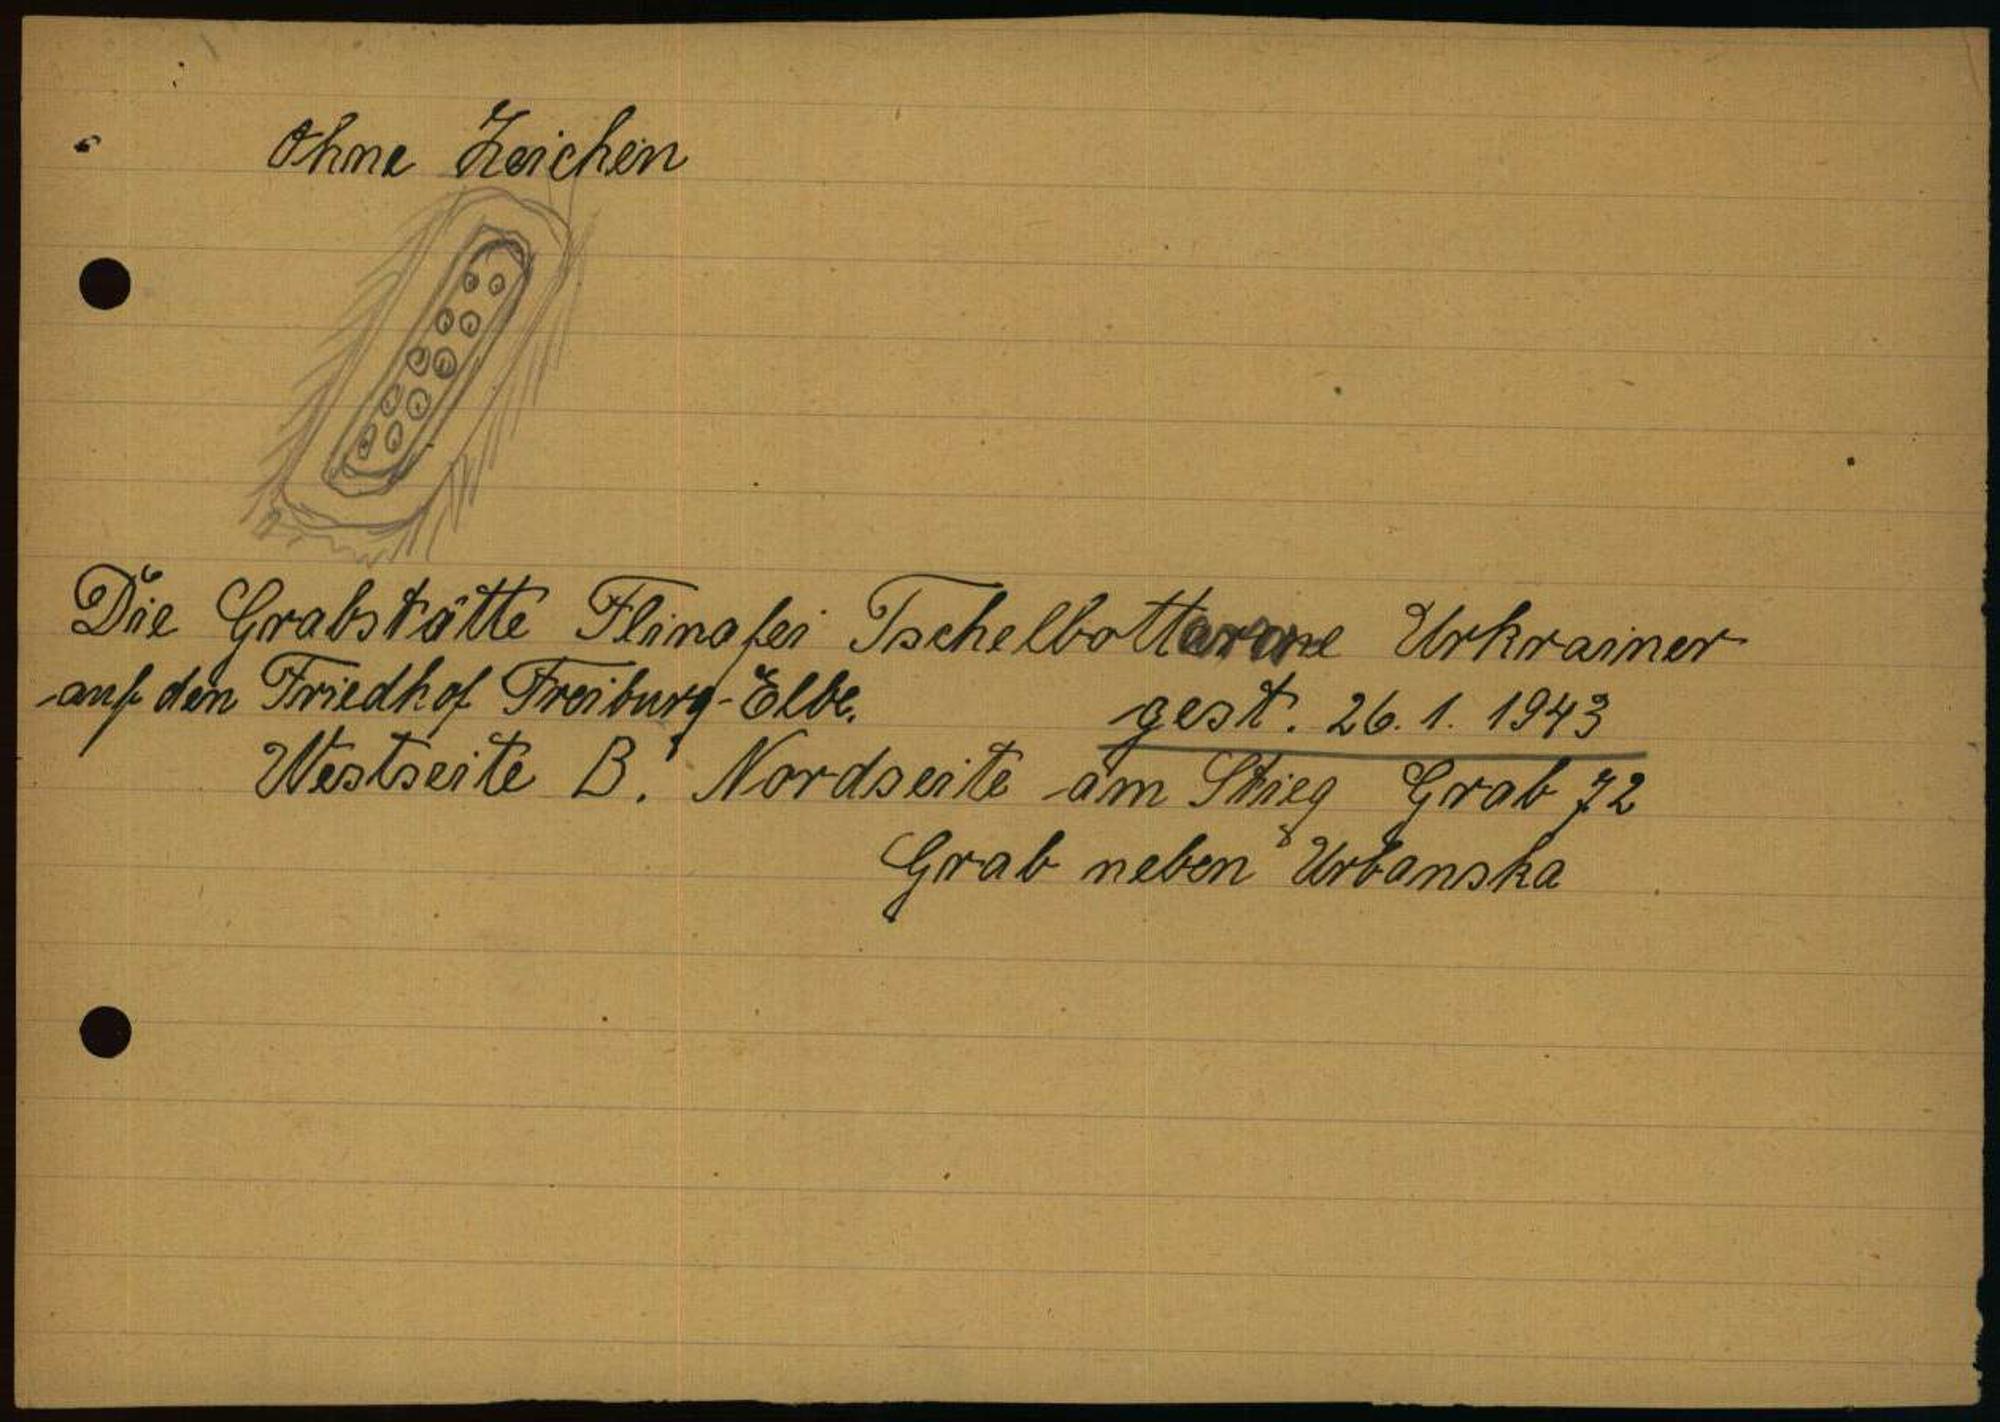 Ohne Zeichen
Die Grabstätte Flinafei Tschelbottarone Urkrainer
auf den Friedhof Freiburg-Elbe.
gest. 26. 1. 1943
Westseite B. Nordseite am Stieg Grab 72
Grab neben Urbanska